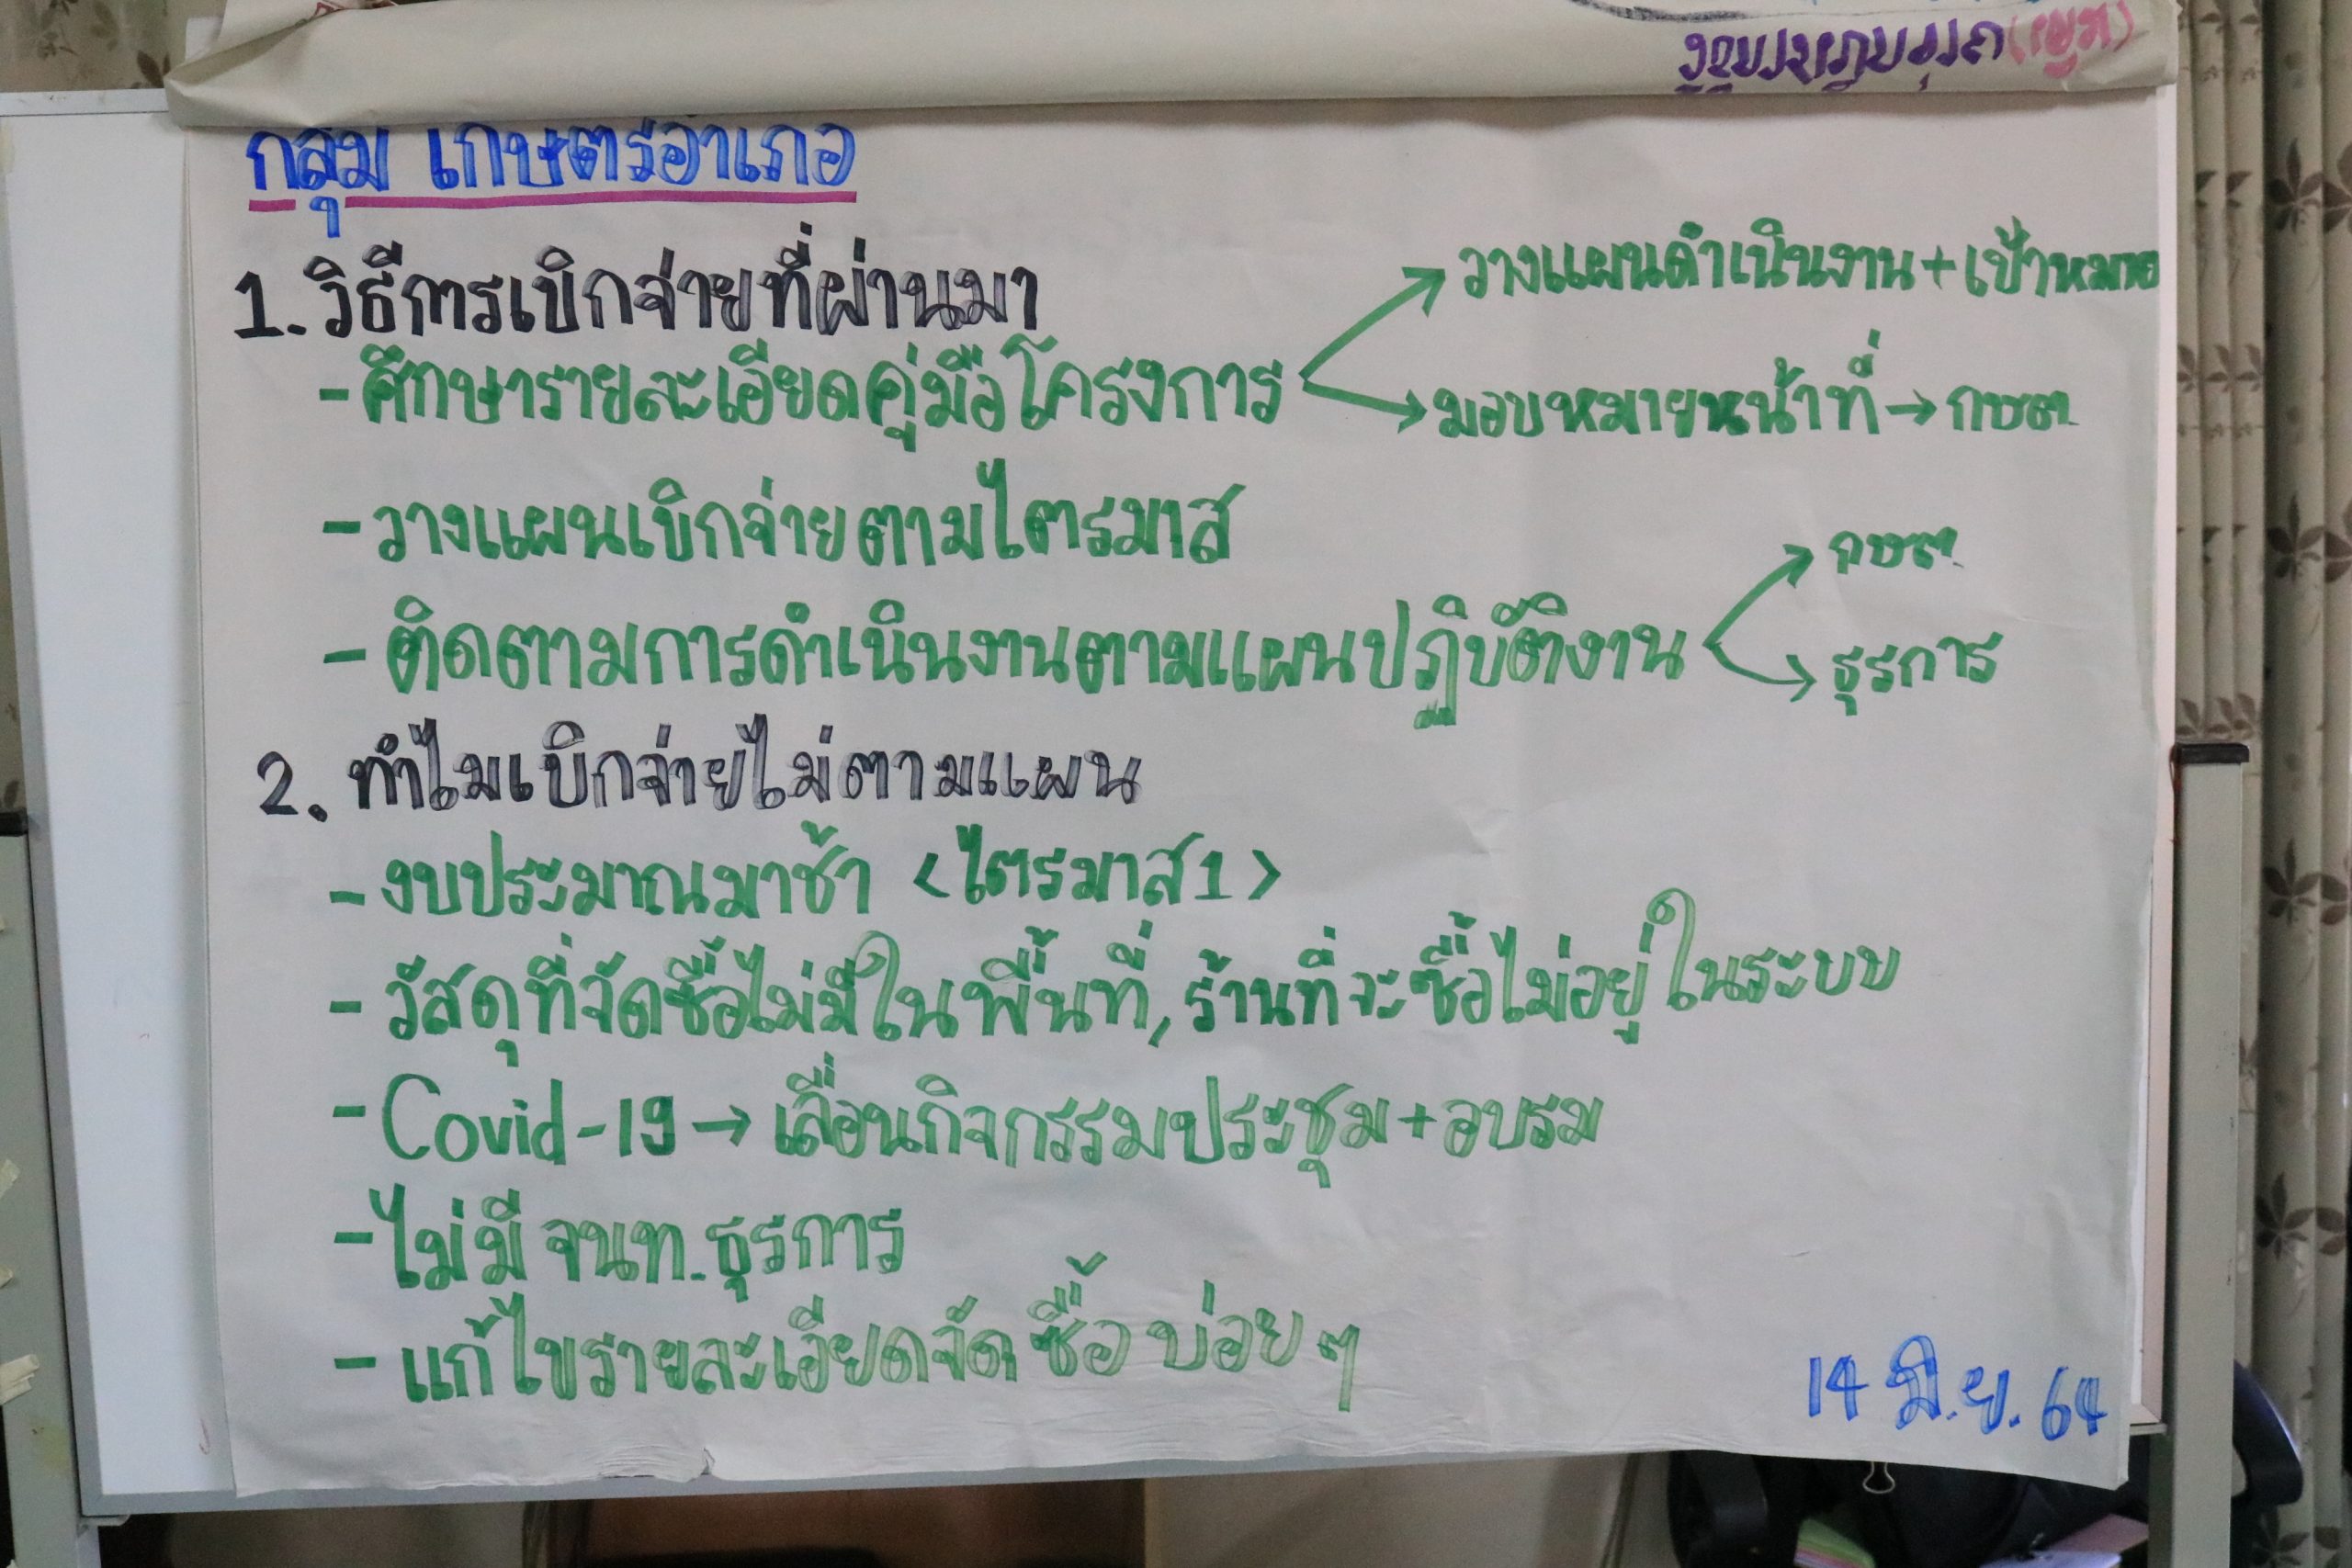 กลุ่ม เกษตรอำเภอ
1. วิธีการเบิกจ่ายที่ผ่านมา
- ศึกษารายละเอียดคู่มือโครงการ
วางแผนดำเนินงาน + เป้าหมาย
มอบหมายหน้าที่ → กษต.
- วางแผนเบิกจ่ายตามไตรมาส
- ติดตามการดำเนินงานตามแผนปฏิบัติงาน
กษต.
ธุรการ
2. ทำไมเบิกจ่ายไม่ตามแผน
- งบประมาณมาช้า <ไตรมาส 1>
- วัสดุที่จัดซื้อไม่มีในพื้นที่, ร้านที่จะซื้อไม่อยู่ในระบบ
- Covid-19 → เลื่อนกิจกรรมประชุม + อบรม
- ไม่มี จนท. ธุรการ
- แก้ไขรายละเอียดจัดซื้อ บ่อย ๆ
14 มิ.ย. 64